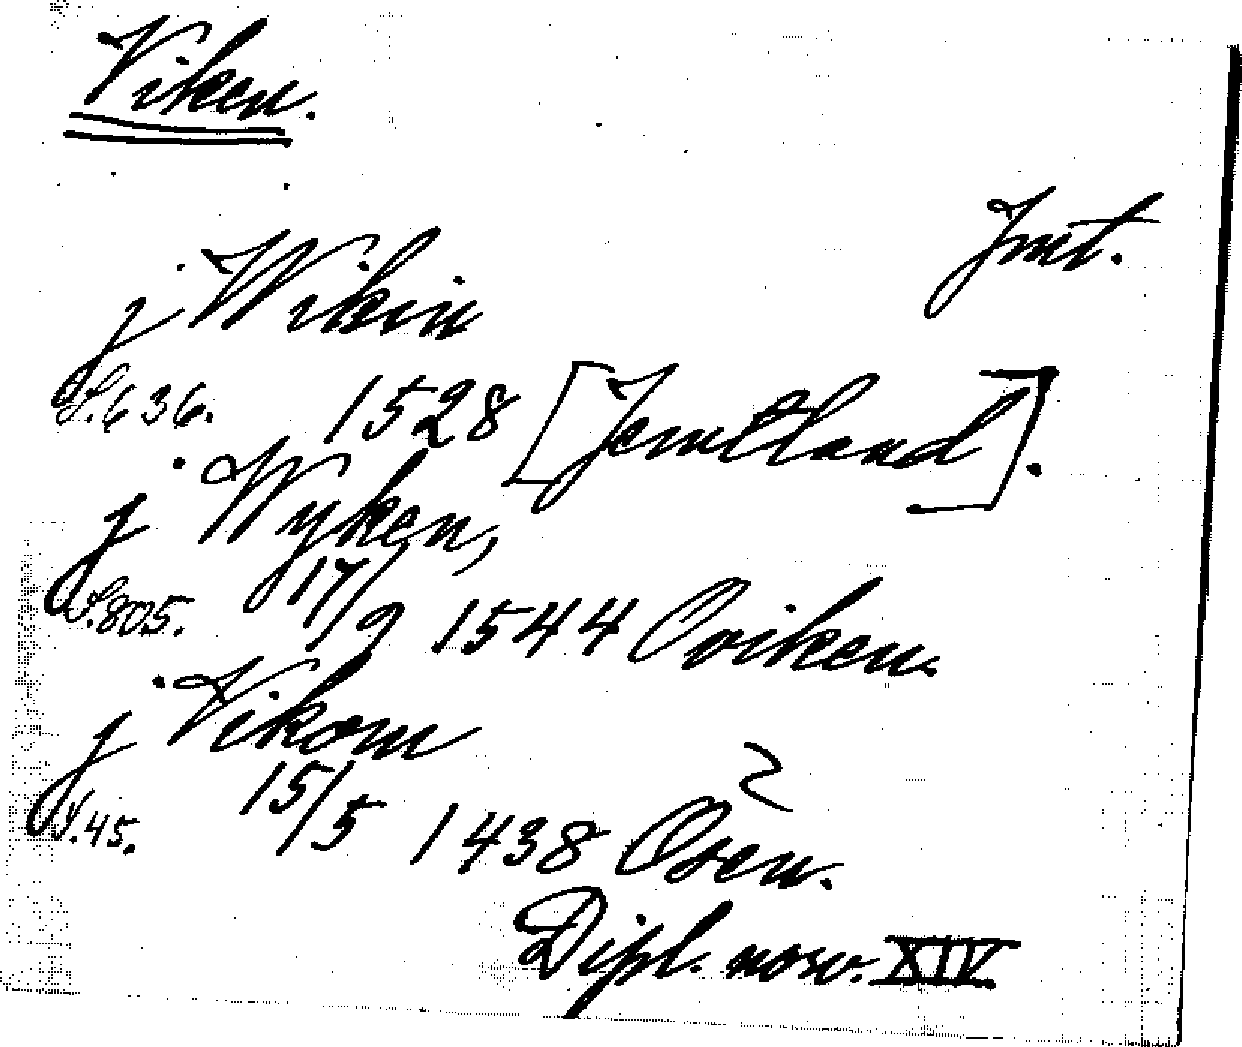 Viken.
Jmt.
j Wikin
S.636. 1528 [Jemtland].
j Wyken,
S.805. 17/9 1544 Oviken.
j Vikom
S.45. 15/5 1438 Osen.
Dipl. norv. XIV